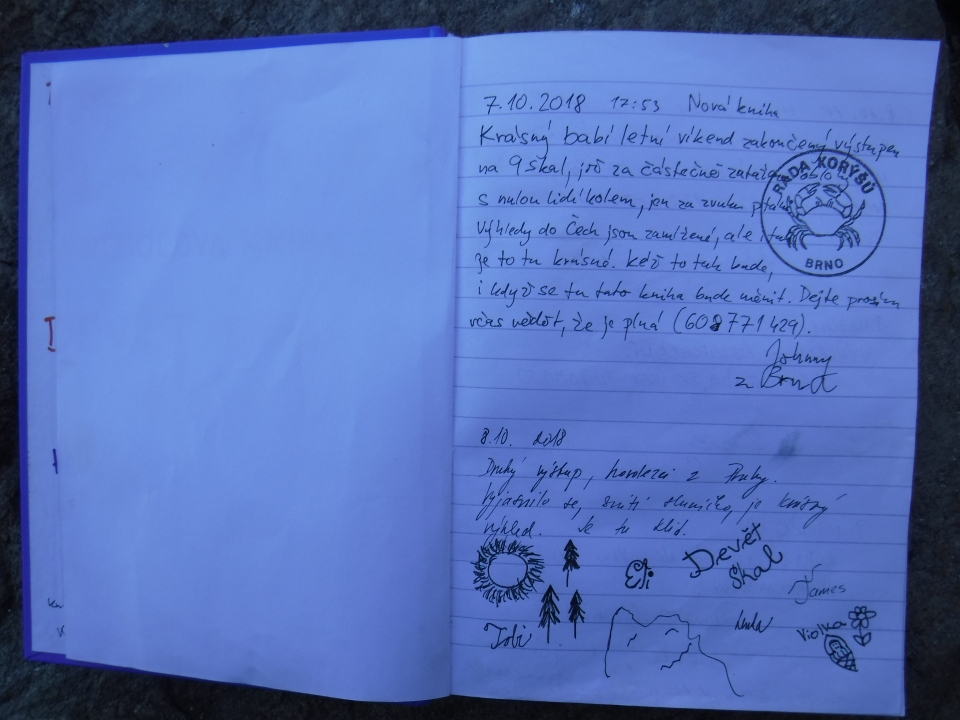 7.10.2018 17:53 Nová kniha
Krásný babí letní víkend zakončený výstupem
na 9 skal, jož za částečně
s nulou lidí kolem, jen za zvuku
výhledy do Čech jsou zamlžené, ale i tak
je to tu krásné. Kéž to tak bude,
i když se tu tato kniha bude měnit. Dejte prosím
včas vědět, že je plná (608771429).
Johnny
z Brna
RADA KORÝŠŮ
BRNO
8.10. 2018
Druhý výstup, z Prahy.
Vyjasnilo se, svítí sluníčko, je krásný
výhled. Je tu klid.
Devět
Skal
Eli
James
Tobi
Violka